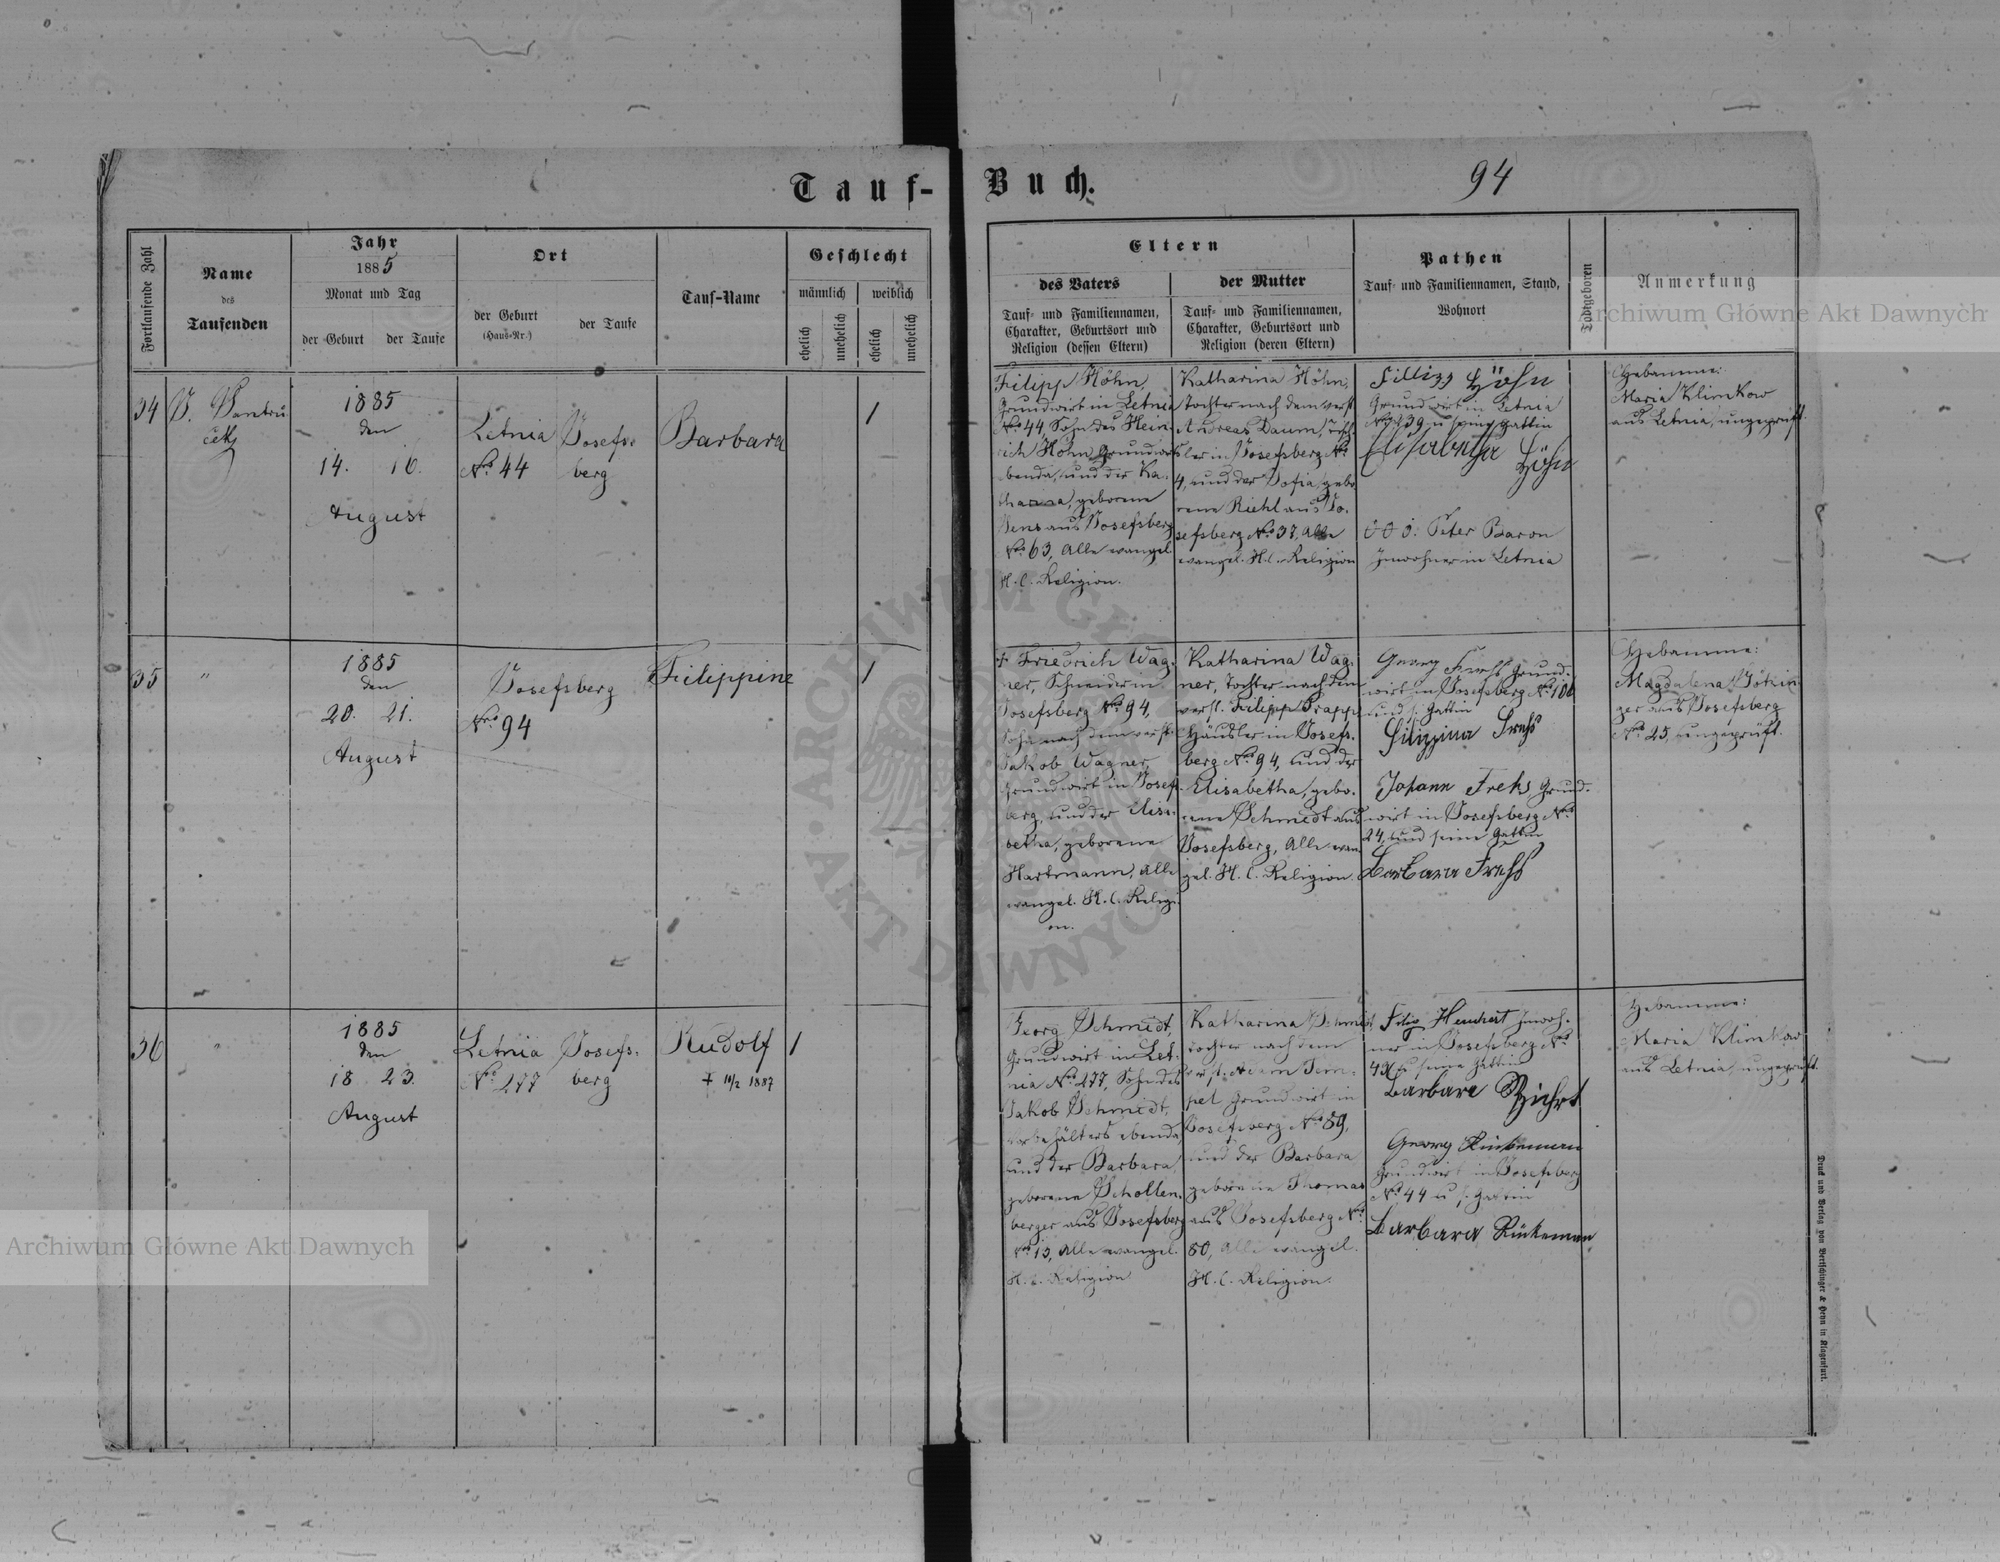 Tauf-Buch.
94
Fortlaufende Zahl
Name
des
Taufenden
Jahr
1885
Monat und Tag
der Geburt
der Taufe
Ort
der Geburt
(Haus-Nr.)
der Taufe
Tauf-Name
Geschlecht
männlich
weiblich
ehelich
unehelich
ehelich
unehelich
Eltern
des Vaters
Tauf- und Familiennamen,
Charakter, Geburtsort und
Religion (dessen Eltern)
der Mutter
Tauf- und Familiennamen,
Charakter, Geburtsort und
Religion (deren Eltern)
Pathen
Tauf- und Familiennamen, Stand,
Wohnort
Todtgeboren
Anmerkung
34
1885
den
14. 16.
August
Letnia
No. 44
Josefs-
berg
Barbara
1
Filipp Höhn,
Grundwirt in Letnia
No. 44, Sohn des Hein-
rich Höhn
ebenda, und der Ka-
geborene
aus Josefsberg
No. 63, Alle evangel.
H. C. Religion.
Katharina Höhn,
Tochter nach dem verst.
Andreas Daum,
in Josefsberg No.
4, und der Sofia, gebo-
rene Riehl aus Jo-
sefsberg No. 37, Alle
evangel. H. C. Religion
Höhn
Grundwirt in Letnia
No. 239 u. seine Gattin
Elisabetha Höhn
Peter Baron
Inwohner in Letnia
Hebamme:
Maria Klimkow
aus Letnia, ungeprüft
35
"
1885
den
20. 21.
August
Josefsberg
No. 94
Filippine
1
† Friedrich Wag-
ner, Schneider in
Josefsberg No. 94,
Sohn nach dem verst.
Jakob Wagner,
Grundwirt in Josefs-
berg, und der Elisa-
betha, geborene
Hartmann, Alle
evangel. H. C. Religi-
on.
Katharina Wag-
ner, Tochter nach dem
verst. Filipp Trapp
Häusler in Josefs-
berg No. 94, und der
Elisabetha, gebo-
rene Schmidt aus
Josefsberg, Alle evan-
gel. H. C. Religion.
Georg Grund-
wirt in Josefsberg
und s. Gattin
Filippina
Johann Grund-
wirt in Josefsberg No.
24, und seine Gattin
Barbara
Hebamme:
Magdalena
aus Josefsberg
No. 25, ungeprüft.
36
"
1885
den
18 23.
August
Letnia
No. 277
Josefs-
berg
Rudolf
† 10/2 1887
1
Georg Schmidt,
Grundwirt in Let-
nia No. 277, Sohn des
Jakob Schmidt,
ebenda,
und der Barbara
geborene Schollen-
berger aus Josefsberg
No. 13, Alle evangel.
H. C. Religion
Katharina Schmidt,
Tochter nach dem
verst. Adam Tem-
pel Grundwirt in
Josefsberg No. 89,
und der Barbara
geborene Thomas
aus Josefsberg No.
80, Alle evangel.
H. C. Religion.
Inwoh-
ner in Josefsberg No.
u. seine Gattin
Barbara
Georg
Grundwirt in Josefsberg
No. 44 u. s. Gattin
Barbara Rinkeman
Hebamme:
Maria Klimkow
aus Letnia, ungeprüft.
Druck und Verlag von Bertschinger & Heyn in Klagenfurt.
Archiwum Główne Akt Dawnych
Archiwum Główne Akt Dawnych
ARCHIWUM GŁÓWNE AKT DAWNYCH